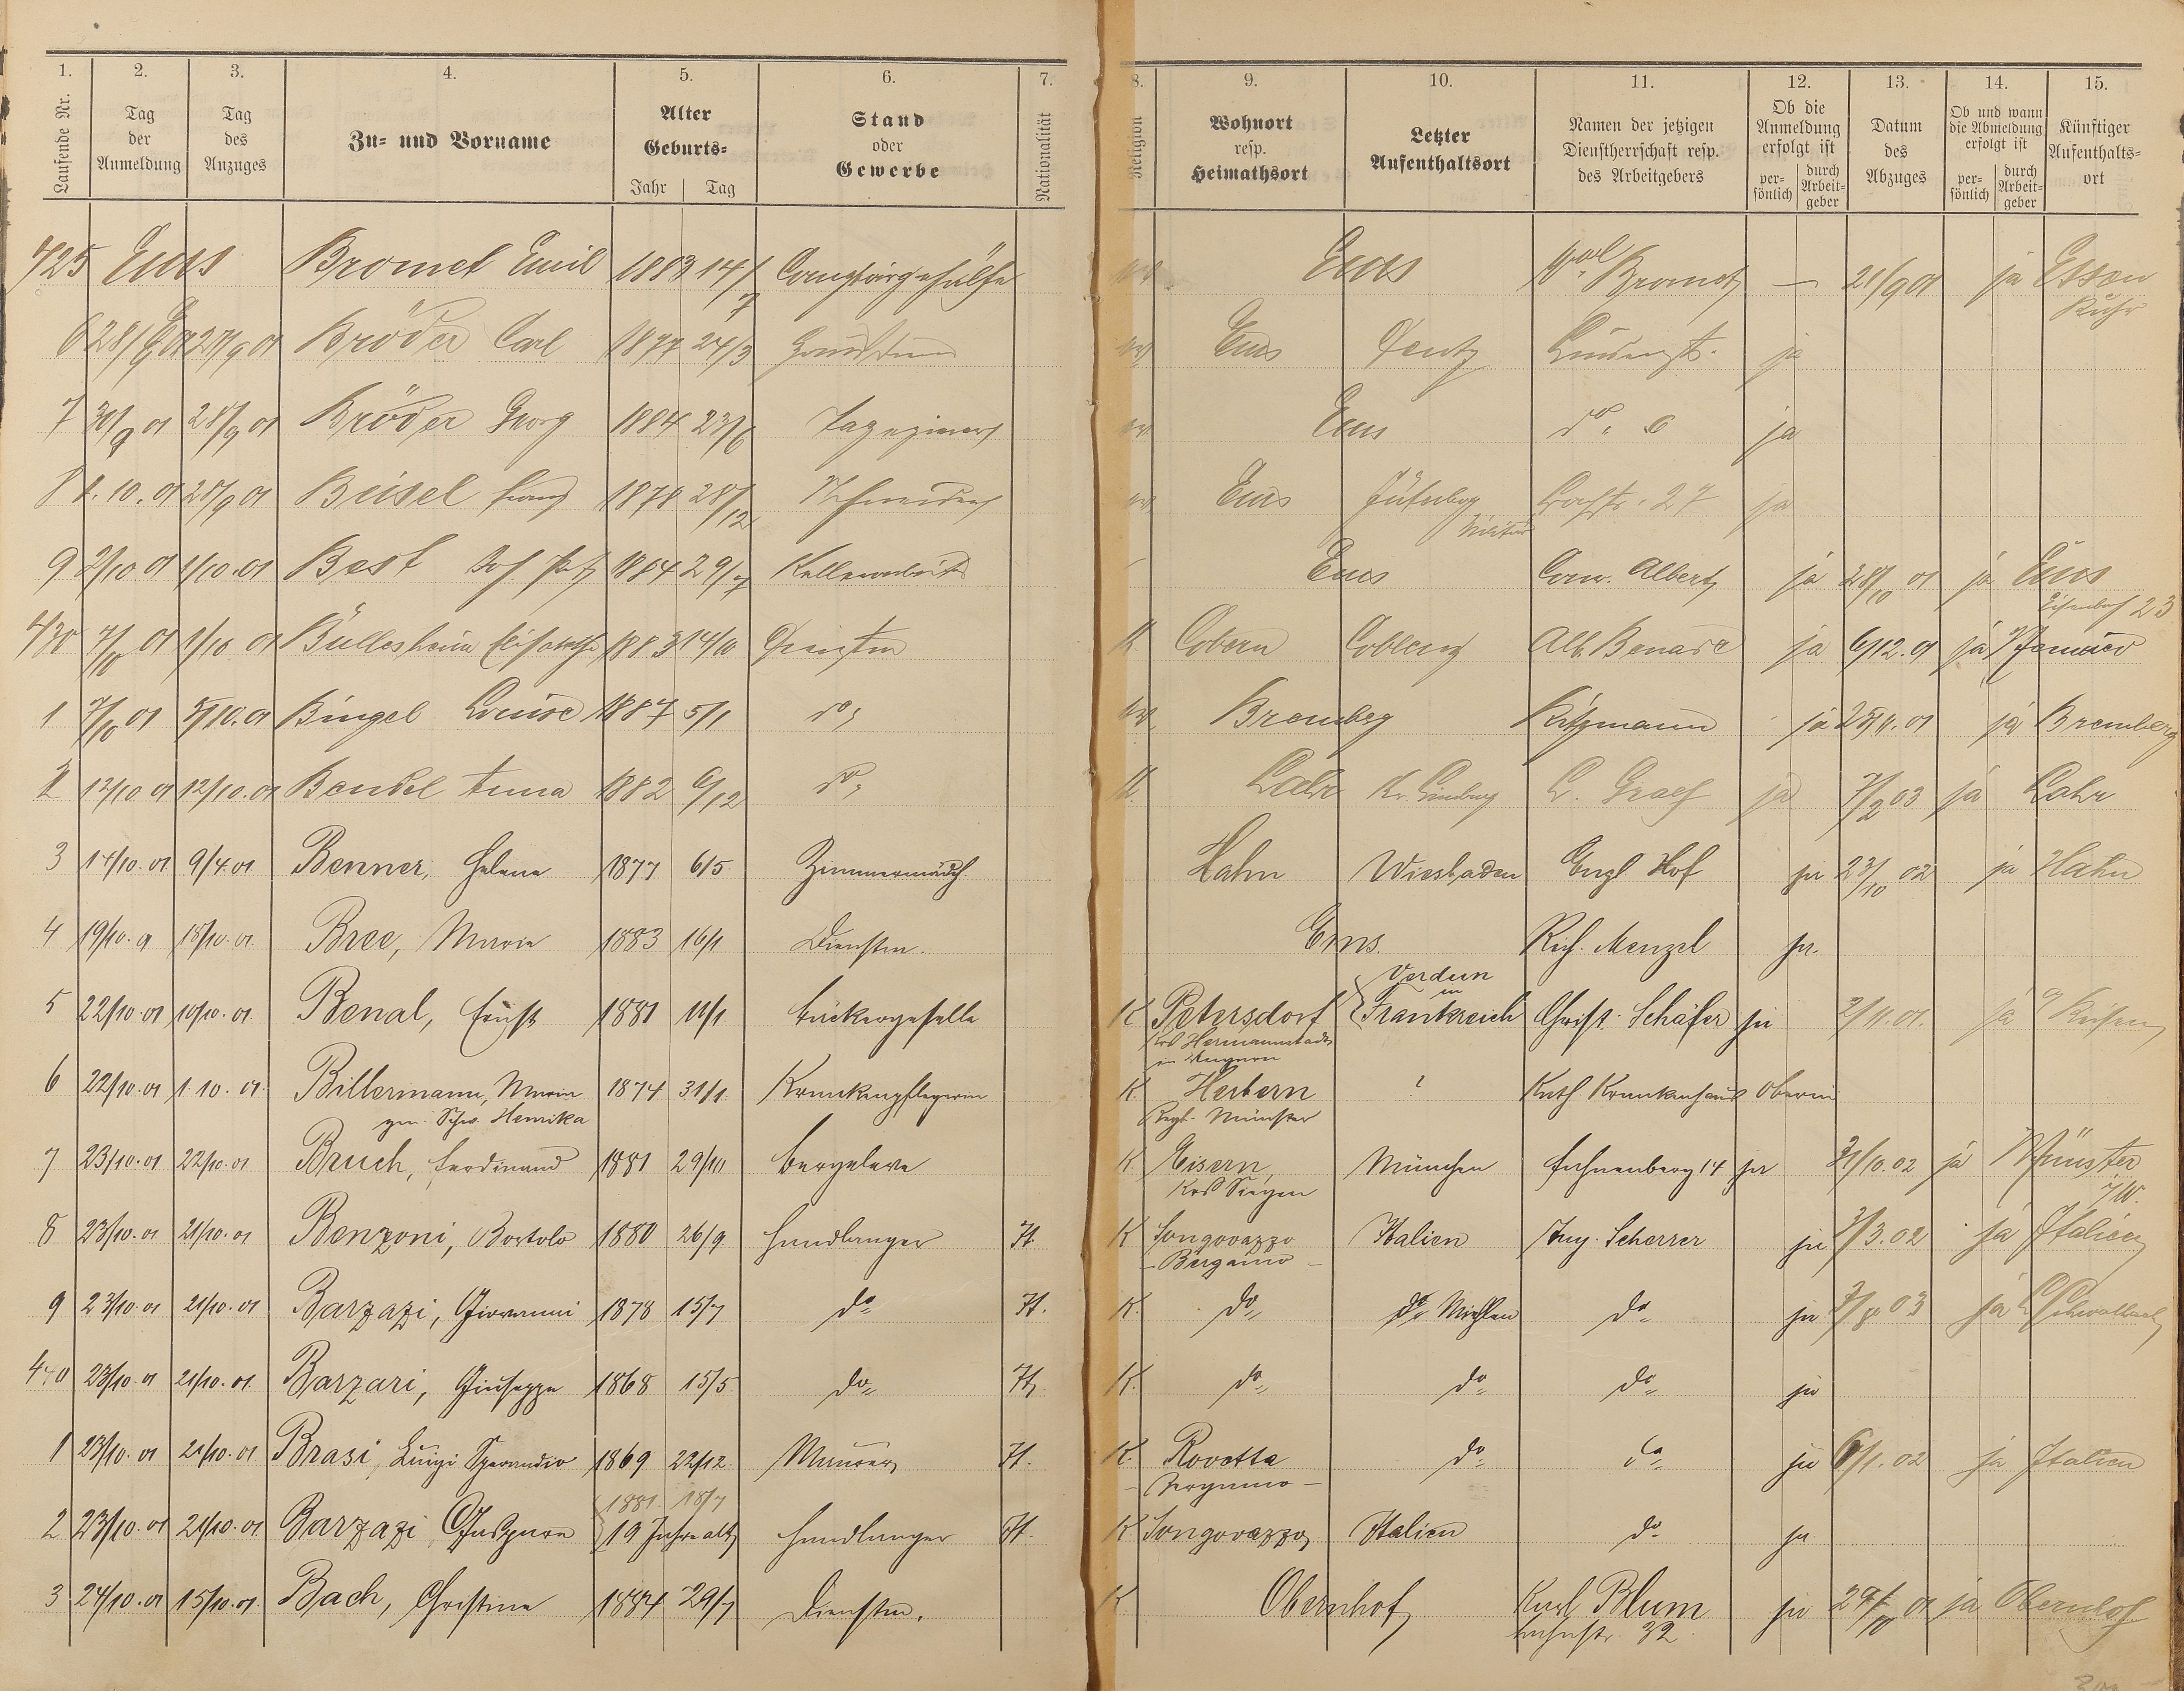 1. 2. 3. 4. 5. 6. 7. 8. 9. 10. 11. 12. 13. 14. 15.
Laufende Nr. | Tag der Anmeldung | Tag des Anzuges | Zu- und Vorname | Alter Geburts- Jahr Tag | Stand oder Gewerbe | Nationalität | Religion | Wohnort resp. Heimathsort | Letzter Aufenthaltsort | Namen der jetzigen Dienstherrschaft resp. des Arbeitgebers | Ob die Anmeldung erfolgt ist persönlich durch Arbeitgeber | Datum des Abzuges | Ob und wann die Abmeldung erfolgt ist persönlich durch Arbeitgeber | Künftiger Aufenthaltsort
425 Ems Bromet Emil 1883 14/7 Comptoirgehülfe Ems Bromet — 21/9 01 ja Essen
Ruhr
6 28/9 01 27/9 01 Bröder Carl 1877 24/3 Ems Deutz ja
7 30/9 01 28/9 01 Bröder Georg 1884 23/6 Ems do 6 ja
8 1.10.01 28/9 01 Beisel Franz 1878 28/12 Schneider Ems Jüterbog 27 ja
Militär
9 2/10 01 1/10.01 Best Jos. 1884 29/7 Kellerarbeiter Ems Conr. Albert ja 28/10 01 ja Ems
23
430 7/10 01 1/10 01 Büllesheim Elisabeth 1883 14/10 Dienstm K Cobern Coblenz Alb. Benade ja 6/12.01 ja
1 7/10 01 5/10.01 Bingel Louise 1887 5/1 do Bremberg Kitzmann ja 25/11.01 ja Bremberg
2 12/10 01 12/10.01 Bendel Anna 1882 6/12 do K. Lahr Kr. Limburg L. Graef ja 7/2 03 ja Lahr
3 14/10.01 9/4.01 Benner, Helene 1877 6/5 Zimmermädch. Hahn Wiesbaden Engl Hof ja 23/10 02 ja Hahn
4 19/10.01 18/10.01 Bree, Marie 1883 16/1 Dienstm. Ems. Rich. Menzel ja.
Verdun
in
5 22/10.01 10/10.01 Benal, Ernst 1881 11/1 Bäckergeselle K Petersdorf Frankreich Christ. Schäfer ja 2/11.01. ja a/ Reisen
Krs Hermannstadt
in Ungarn
6 22/10.01 1.10.01. Billermann, Maria 1874 31/1 Krankenpflegerin K. Herbern Kath. Krankenhaus Oberin
gen. Schw. Henrika Regb. Münster
7 23/10.01 22/10.01 Bruch, Ferdinand 1881 29/10 Bergeleve K Eisern, München 14 ja 31/10.02 ja Münster
Krs Siegen i/W.
8 23/10.01 21/10.01 Benzoni, Bortolo 1880 26/9 Handlanger It K Songovazzo Italien Aug. Scherrer ja 3/3.02 ja Italien
– Bergamo –
9 23/10.01 21/10.01 Barzazi, Giovanni 1878 15/7 do It. K. do Miehlen do ja 03 ja L Schwalbach
440 23/10.01 21/10.01 Barzari, Giuseppe 1868 15/5 do It. K. do do do ja
1 23/10.01 21/10.01 Brasi, Luigi Sperandio 1869 22/12 Maurer It. K. Rovetta do do ja 6/1.02 ja Italien
– Bergamo –
1881 18/7
2 23/10.01 21/10.01 Barzazi 19 Jahre alt Handlanger It. K Songovazzo Italien do ja
3 24/10.01 15/10.01. Bach, Christine 1884 29/7 Dienstm. K Obernhof Karl Blum ja 29/10 01 ja Obernhof
Lahnstr. 32